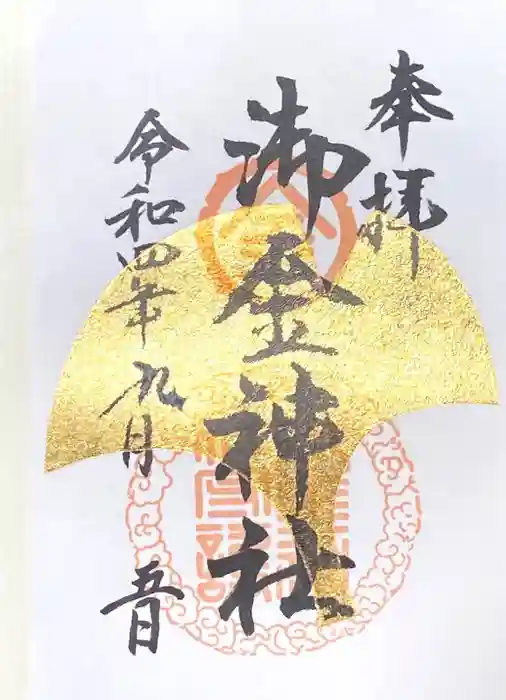 奉拝
御金神社
令和四年九月五日